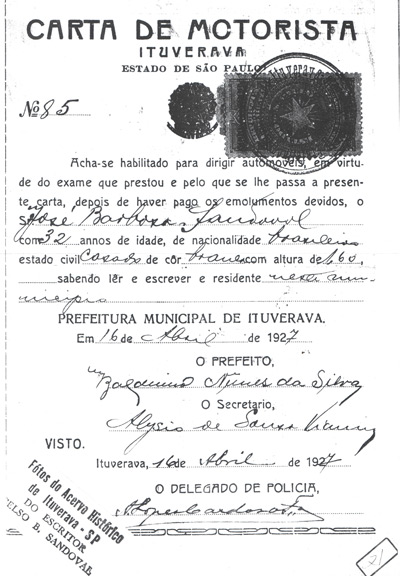 CARTA DE MOTORISTA
ITUVERAVA
ESTADO DE SÃO PAULO
Nº 85
Ituverava
Acha-se habilitado para dirigir automoveis, em virtu-
de do exame que prestou e pelo que se lhe passa a presen-
te carta, depois de haver pago os emolumentos devidos, o
Sr José Barbosa Sandoval
com 32 annos de idade, de nacionalidade brasileiro
estado civil Casado de côr branca com altura de 1,60,
sabendo lêr e escrever e residente neste mu-
nicipio
PREFEITURA MUNICIPAL DE ITUVERAVA.
Em 16 de Abril de 1927
O PREFEITO,
Balduino Nunes da Silva
O Secretario,
Alysio de Souza
VISTO.
Ituverava, 16 de Abril de 1927
O DELEGADO DE POLICIA,
Fótos do Acervo Histórico
de Ituverava - SP
DO ESCRITOR
CELSO B. SANDOVAL
21